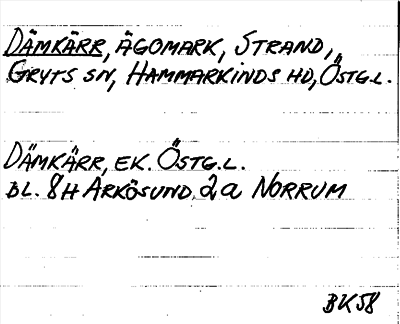 DÄMKÄRR, ÄGOMARK, STRAND,
GRYTS SN, HAMMARKINDS HD, ÖSTG.L.
DÄMKÄRR, EK. ÖSTG.L.
BL. 8H ARKÖSUND 2a NORRUM
BK58